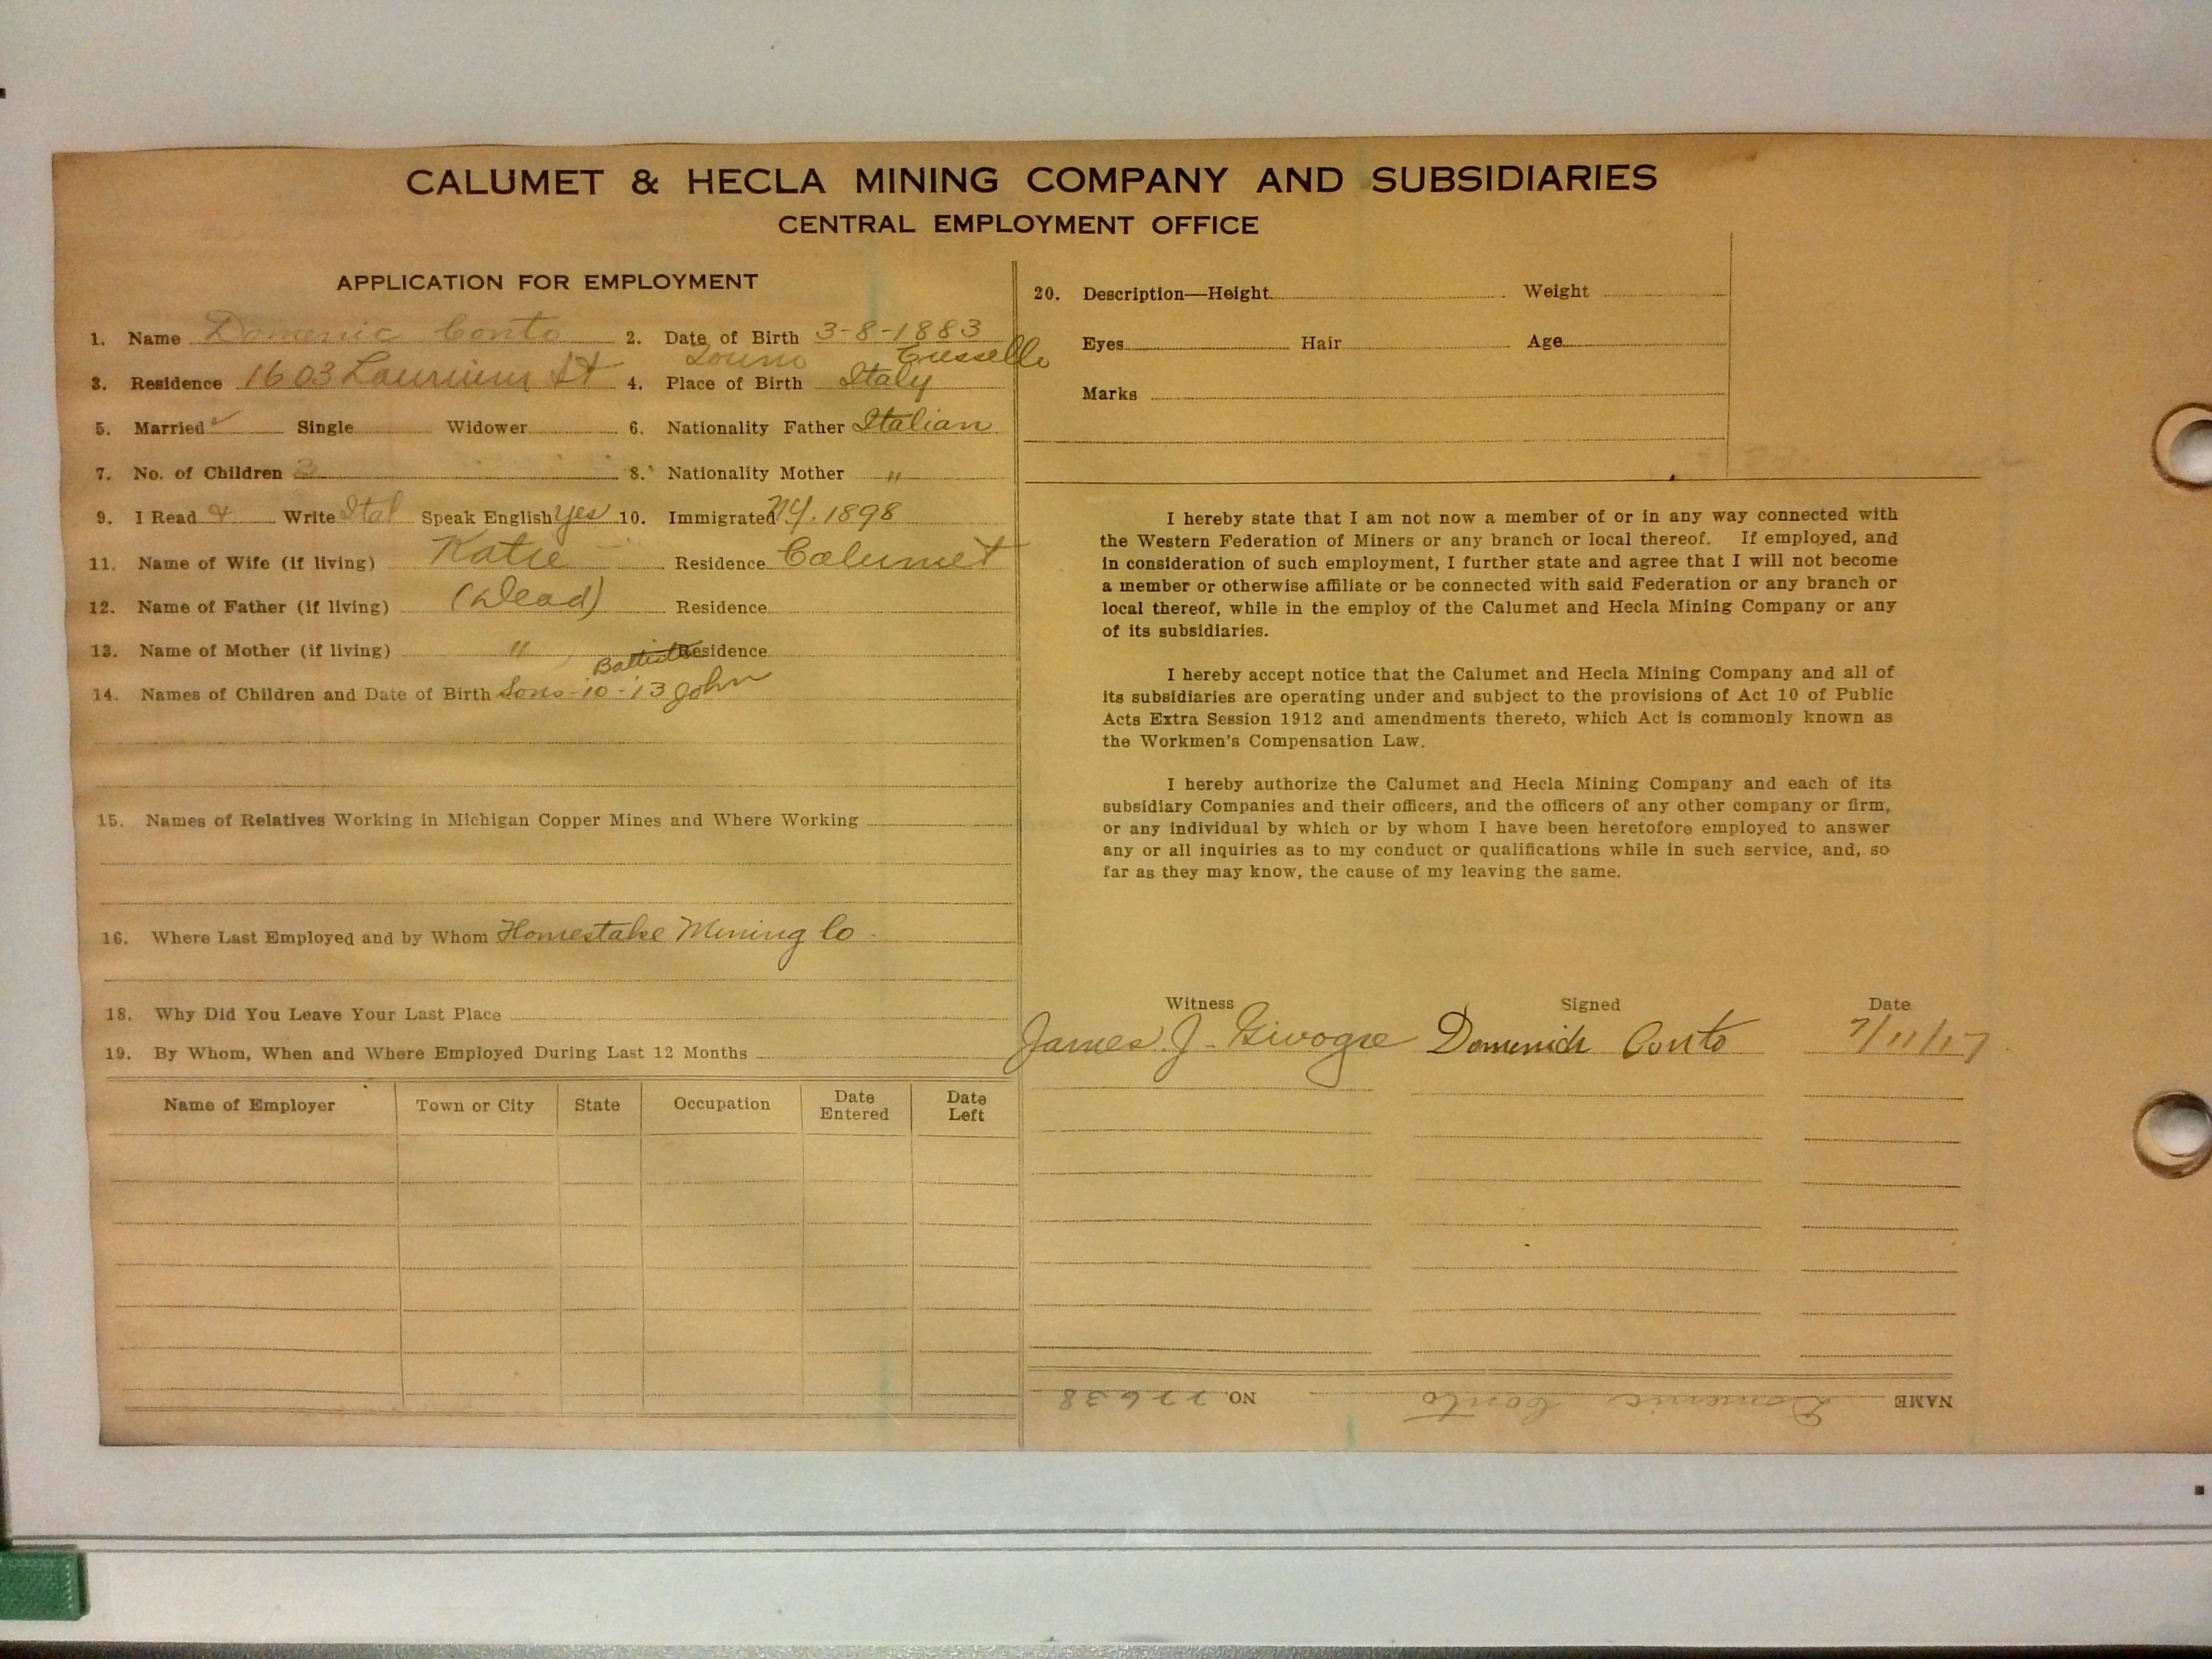 CALUMET & HECLA MINING COMPANY AND SUBSIDIARIES
CENTRAL EMPLOYMENT OFFICE
APPLICATION FOR EMPLOYMENT
1. Name Domenic Conto 2. Date of Birth 3-8-1883
3. Residence 1603 Laurium St 4. Place of Birth Italy
5. Married ✓ Single Widower 6. Nationality Father Italian
7. No. of Children 2 8. Nationality Mother "
9. I Read & Write Ital Speak English yes 10. Immigrated NY. 1898
11. Name of Wife (if living) Katie Residence Calumet
12. Name of Father (if living) (Dead) Residence
13. Name of Mother (if living) " Residence
14. Names of Children and Date of Birth Sons-'10-'13 John
15. Names of Relatives Working in Michigan Copper Mines and Where Working
16. Where Last Employed and by Whom Homestake Mining Co.
18. Why Did You Leave Your Last Place
19. By Whom, When and Where Employed During Last 12 Months
Name of Employer Town or City State Occupation Date Entered Date Left
20. Description—Height Weight
Eyes Hair Age
Marks
I hereby state that I am not now a member of or in any way connected with
the Western Federation of Miners or any branch or local thereof. If employed, and
in consideration of such employment, I further state and agree that I will not become
a member or otherwise affiliate or be connected with said Federation or any branch or
local thereof, while in the employ of the Calumet and Hecla Mining Company or any
of its subsidiaries.
I hereby accept notice that the Calumet and Hecla Mining Company and all of
its subsidiaries are operating under and subject to the provisions of Act 10 of Public
Acts Extra Session 1912 and amendments thereto, which Act is commonly known as
the Workmen's Compensation Law.
I hereby authorize the Calumet and Hecla Mining Company and each of its
subsidiary Companies and their officers, and the officers of any other company or firm,
or any individual by which or by whom I have been heretofore employed to answer
any or all inquiries as to my conduct or qualifications while in such service, and, so
far as they may know, the cause of my leaving the same.
Witness Signed Date
James J. Domenich Conto 7/11/17
NAME Domenic Conto NO. 22638